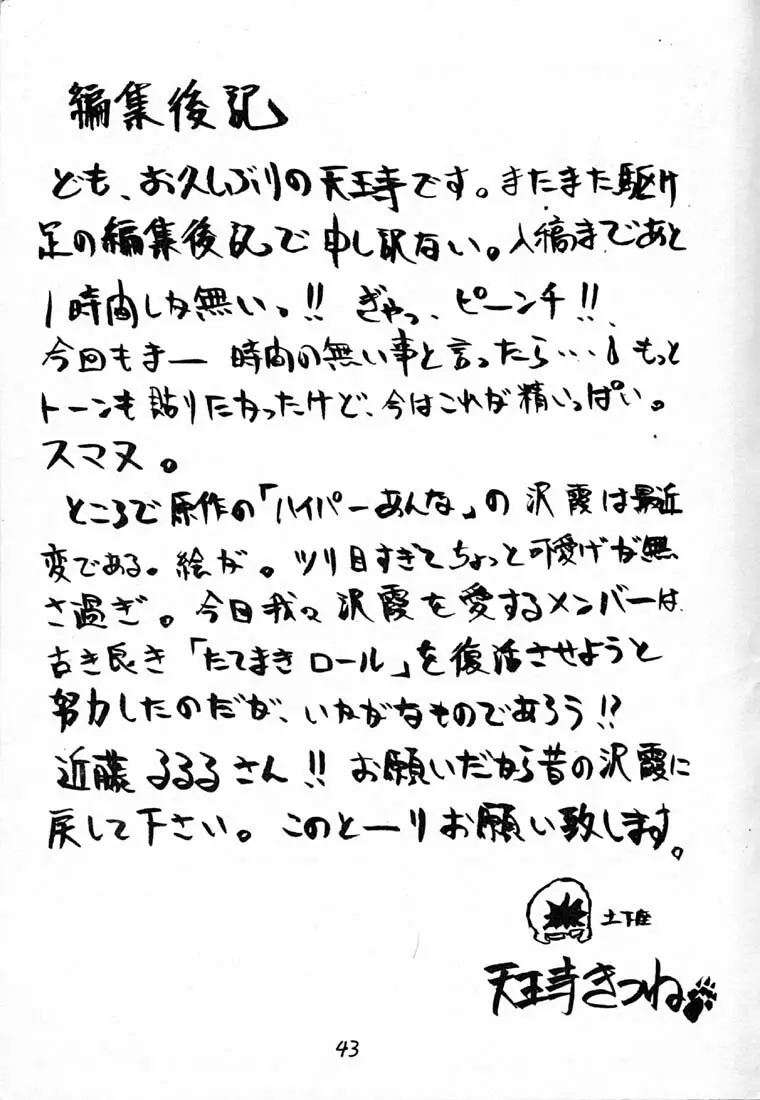 編集後記
ども、お久しぶりの天王寺です。またまた駆け
足の編集後記で申し訳ない。入稿まであと
1時間しか無いっ!! ぎゃっ、ピーンチ!!
今回もまー時間の無い事と言ったら…!もっと
トーンも貼りたかったけど、今はこれが精いっぱい。
スマヌ。
ところで原作の「ハイパーあんな」の沢霞は最近
変である。絵が。ツリ目すぎてちょっと可愛げが無
さ過ぎ。今回我々沢霞を愛するメンバーは
古き良き「たてまきロール」を復活させようと
努力したのだが、いかがなものであろう!?
近藤るるるさん!! お願いだから昔の沢霞に
戻して下さい。このとーりお願い致します。
土下座
天王寺きつね
43